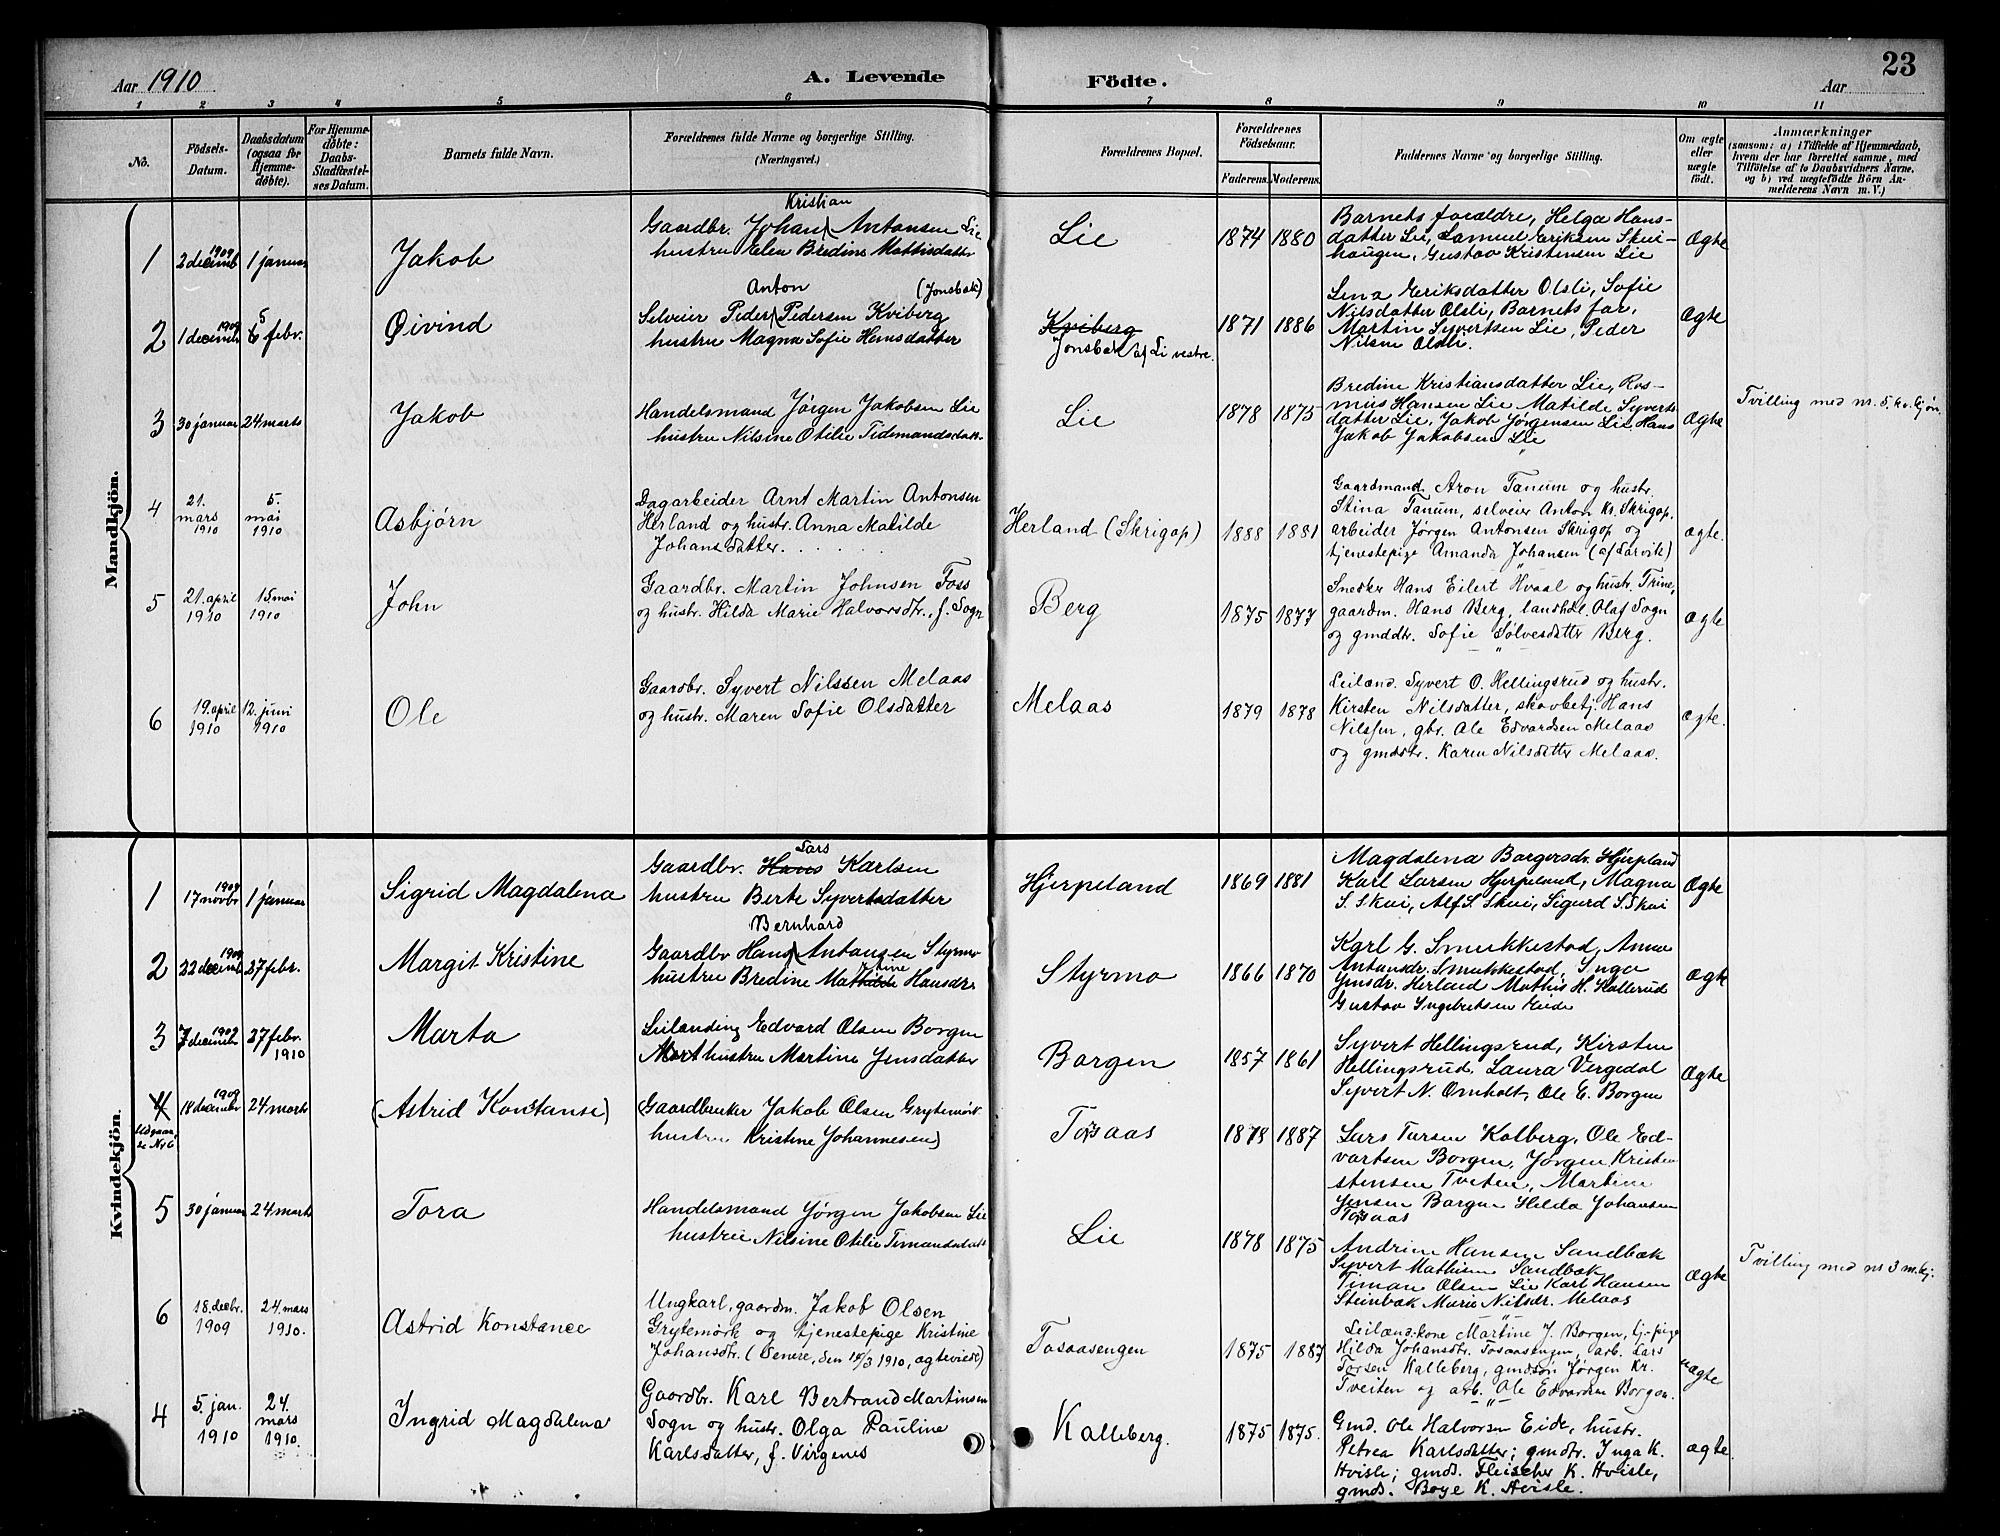 Aar 1910
A. Levende Födte.
Aar
23
1 2 3 4 5 6 7 8 9 10 11
No.
Födsels-
Datum.
Daabsdatum
(ogsaa for
Hjemme-
döbte).
For Hjemme-
döbte:
Daabs-
Stadfæstel-
ses Datum.
Barnets fulde Navn.
Forældrenes fulde Navne og borgerlige Stilling.
(Næringsvei.)
Forældrenes Bopæl.
Forældrenes
Födselsaar.
Faderens. Moderens.
Faddernes Navne og borgerlige Stilling.
Om ægte
eller
uægte
födt.
Anmærkninger
(saasom: a) i Tilfælde af Hjemmedaab,
hvem der har forrettet samme, med
Tilföielse af to Daabsvidners Navne.
og b) ved uægtefödte Börn An-
melderens Navn m. V.)
Mandkjön.
1
1909
2 decemb
1 januar
Jakob
Kristian
Gaardbr. Johan Antonsen Lie
hustru Elen Bredine Mathisdatter
Lie
1874 1880
Barnets forældre, Helga Hans-
datter Lie, Samuel Eriksen Skui-
haugen, Gustav Kristensen Lie
Ægte
2
1909
1 decemb
5
6 febr.
Øivind
Anton (Jonsbak)
Selveier Peder Pedersen Kviberg
hustru Magna Sofie Hansdatter
Kviberg
Jonsbak af Li vestre.
1871 1886
Lena Eriksdatter Olsli, Sofie
Nilsdatter Olsli, Barnets far,
Martin Syvertsen Lie, Peder
Nilsen Olsli.
Ægte
3
30 januar
24 marts
Jakob
Handelsmand Jörgen Jakobsen Lie
hustru Nilsine Otilie Tidemandsdatt.
Lie
1878 1875
Bredine Kristiansdatter Lie, Ras-
mus Hansen Lie Matilde Syverts-
datter Lie, Jakob Jørgensen Lie, Hans
Jakob Jakobsen Lie
Ægte
Tvilling med nr. 5. kv. kjøn.
4
21.
mars
1910
5.
mai
1910
Asbjørn
Dagarbeider Arnt Martin Antonsen
Herland og hustr. Anna Matilde
Johansdatter.
Herland (Skrigop)
1888 1881
Gaardmand Aron Tanum og hustr.
Stina Tanum, selveier Anton Kr. Skrigop.
arbeider Jørgen Antonsen Skrigop og
tjenestepige Amanda Johansen (af Larvik)
ægte.
5
21. april
1910
15. mai
1910
John
Gaardbr. Martin Johnsen Foss
og hustr. Hilda Marie Halvorsdtr., f. Sogn
Berg
1875 1877
Snedker Hans Eilert Hvaal og hustr. Trine,
gaardm. Hans Berg, landhdl. Olaf Sogn
og gmddtr. Sofie Sølvesdatter Berg.
ægte
6
19. april
1910
12. juni
1910
Ole
Gaardbr. Syvert Nilssen Melaas
og hustr. Maren Sofie Olsdatter
Melaas
1879 1878
Leilænd. Syvert O. Hellingsrud og hustr.
Kirsten Nilsdatter, skovbetj. Hans
Nilssen, gbr. Ole Edvardsen Melaas
og gmddtr. Karen Nilsdatter Melaas.
ægte.
Kvindekjön.
1
1909
17 novbr
1 januar
Sigrid Magdalena
Lars
Gaardbr. Hans Karlsen
hustru Berte Syvertsdatter
Hjerpeland
1869 1881
Magdalena Borgersdr. Hjerpeland
Karl Larsen Hjerpeland, Magna
S. Skui, Alf S. Skui, Sigurd S. Skui
Ægte
2
1909
22 decemb
27 febr.
Margit Kristine
Bernhard
Gaardbr Hans Antonsen Styrmo
hustru Bredine Mathilde Hansdr.
Styrmo
1866 1870
Karl G. Smukkestad, Anna
Antonsdr. Smukkestad, Inga
Gmdr. Herland Mathis H. Kollerud
Gustav Ingebretsen Eide
Ægte
3
1909
7 decemb
27 febr.
1910
Marta
Leilending Edvard Olsen Borgen
hustru Martine Jensdatter
Borgen
1857 1861
Syvert Hellingsrud, Kirsten
Hellingsrud, Laura Vergedal
Syvert N. Omholt, Ole E. Borgen
Ægte
4
Udgaar,
se Nr 6
1909
18 decembr
24 marts
(Astrid Konstanse)
(Gaardbruker Jakob Olsen Grytemörk
hustru Kristine Johannesen)
Tosaas
1878 1887
Lars Tarsen Kolberg, Ole Ed-
vartsen Borgen, Jörgen Kristen
stensen Tveten, Martine
Jensen Borgen Hilda Johansen
Tosaas
5
30 januar
24 marts
Tora
Handelsmand Jörgen Jakobsen Lie
hustru Nilsine Otilie Timandsdatt.
Lie
1878 1875
Andrine Hansen Sandbæk
Syvert Mathisen Sandbæk
Timan Olsen Lie Karl Hansen
Steinbæk Marie Nilsdr. Melaas
Ægte
Tvilling med nr 3 m.kj.
6
18. decbr.
1909
24. mars
1910.
Astrid Konstance
Ungkarl, gaardm. Jakob Olsen
Grytemörk og tjenestepige Kristine
Johansdtr. (Senere, den 14/3 1910, ægteviede)
Tosaasengen
1875 1887
Leilænd.kone Martine J. Borgen, tj.-pige
Hilda Johansdtr. Tosaasengen, arb. Lars
Torsen Kalleberg, gmdsøn Jørgen Kr.
Tveiten og arb. Ole Edvardsen Borgen.
uægte
4
5. jan.
1910
24.
mars
1910.
Ingrid Magdalena
Gaardbr. Karl Bertrand Martinsen
Sogn og hustr. Olga Pauline
Karlsdatter, f. Virgenes
Kalleberg.
1875 1875.
Gmd. Ole Halvorsen Eide, hustr.
Petrea Karlsdatter; gmdtr. Inga K.
Hvisle; gmds. Fleischer K. Hvisle,
gmds. Boye K. Hvisle.
ægte.